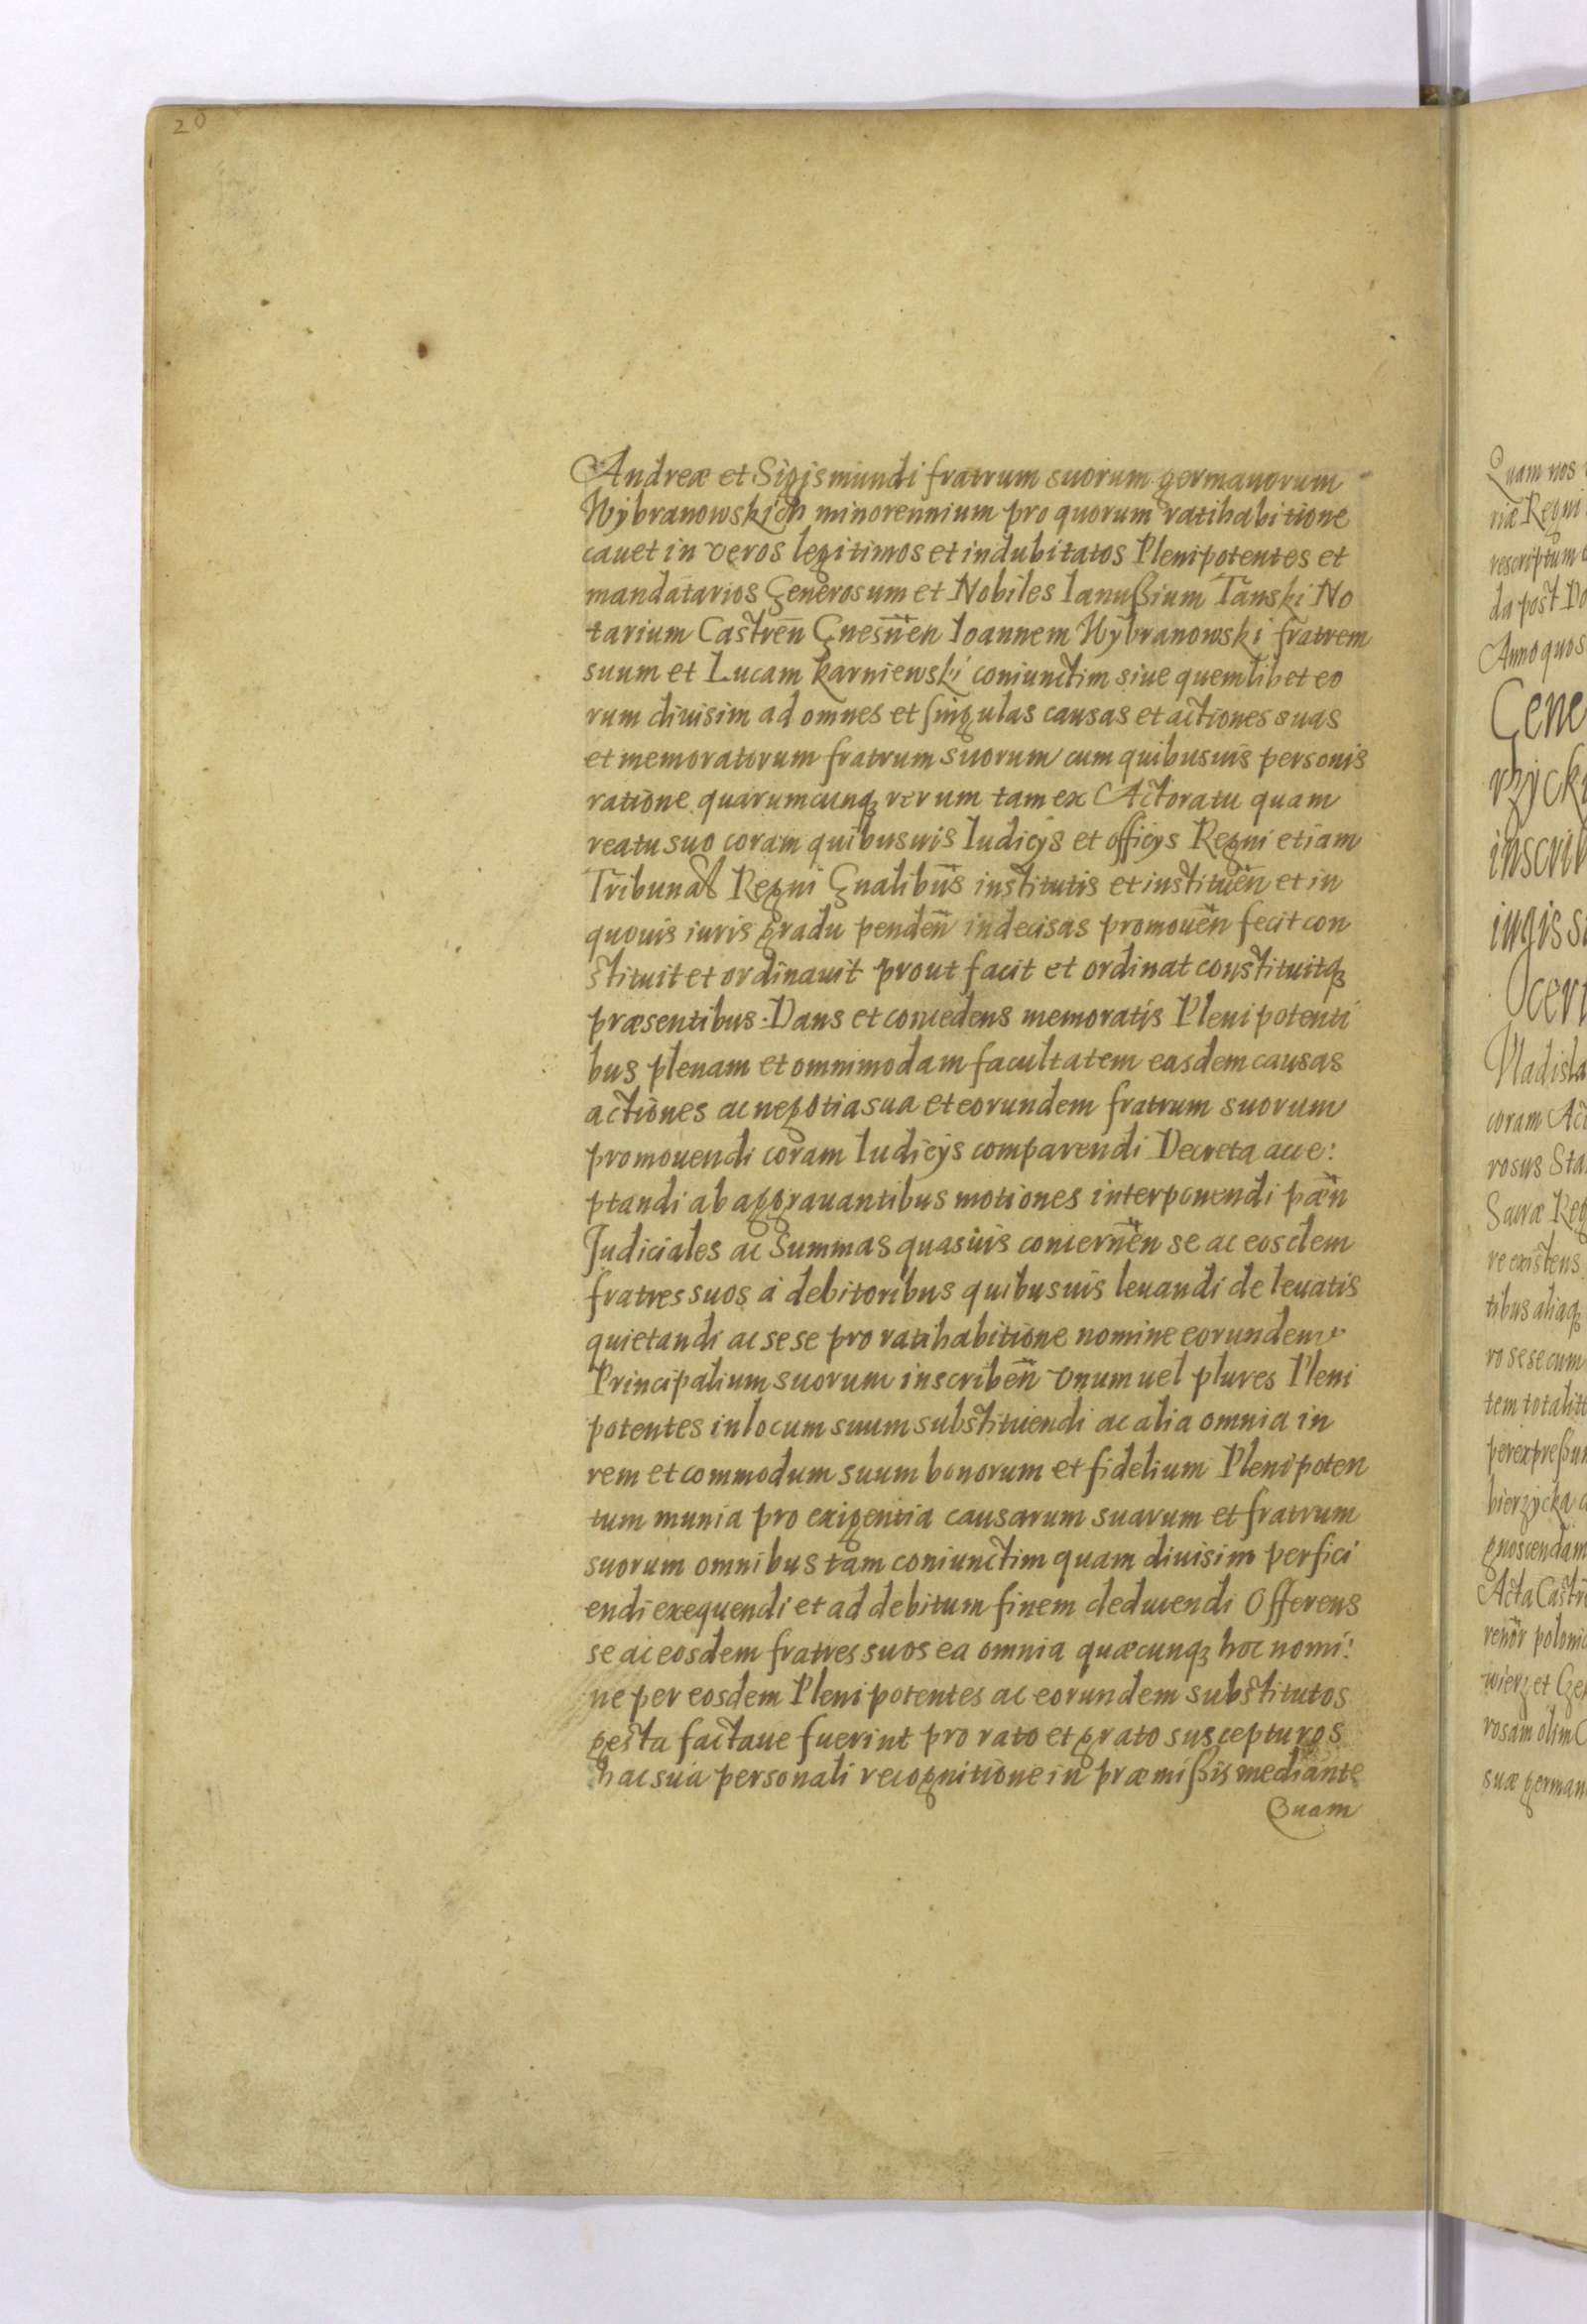 20
Andreæ et Sigismundi fratrum suorum germanorum
Wybranowskich minorennium pro quorum ratihabitione
cauet in veros legitimos et indubitatos Plenipotentes et
mandatarios Generosum et Nobiles Ianußium Tanski No
tarium Castren̄ Gnesn̄en Ioannem Wybranowski fratrem
suum et Lucam karniewski coniunctim siue quemlibet eo
rum diuisim ad omnes et singulas causas et actiones suas
et memoratorum fratrum suorum cum quibusuis personis
ratione quarumcunqꝫ rerum tam ex Actoratu quam
reatu suo coram quibusuis Iudicijs et officijs Regni etiam
Tribunal Regni Gnalibus̄ institutis et instituen̄ et in
quouis iuris gradu penden̄ indecisas promouen̄ fecit con
stituit et ordinauit prout facit et ordinat constituitqꝫ
præsentibus. Dans et concedens memoratis Plenipotenti
bus plenam et omnimodam facultatem easdem causas
actiones ac negotia sua et eorundem fratrum suorum
promouendi coram Iudicijs comparendi Decreta acce:
ptandi ab aggrauantibus motiones interponendi pæn̄
Judiciales ac Summas quasuis concernen̄ se ac eosdem
fratres suos à debitoribus quibusuis leuandi de leuatis
quietandi ac sese pro ratihabitione nomine eorundem
Principalium suorum inscriben̄ vnum uel plures Pleni
potentes in locum suum substituendi ac alia omnia in
rem et commodum suum bonorum et fidelium Plenipoten
tum munia pro exigentia causarum suarum et fratrum
suorum omnibus tam coniunctim quam diuisim perfici
endi exequendi et ad debitum finem deducendi Offerens
se ac eosdem fratres suos ea omnia quæcunqꝫ hoc nomi:
ne per eosdem Plenipotentes ac eorundem substitutos
gesta factaue fuerint pro rato et grato suscepturos
hac sua personali recognitione in præmißis mediante
Quam
Quam nos
riæ Regni
rescriptum
da post Do
Anno quos
Gene
rzyck
inscrib
iugis s
Ocer
Vladisla
coram Act
rosus Sta
Sacræ Reg
re existens
tibus aliaqꝫ
ro sese cum
tem totalit
per expreßum
bierzycka
gnoscendam
Acta Castr
wierz et Gen
rosam olim
suæ german